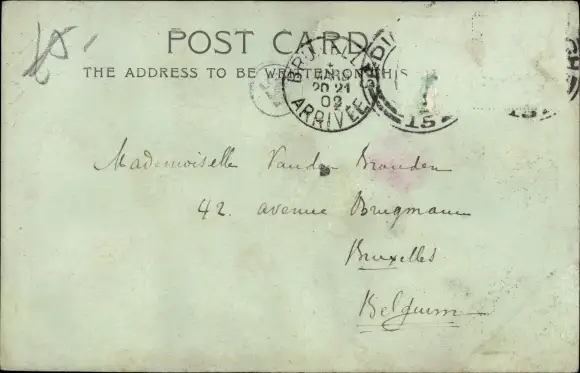 POST CARD
THE ADDRESS TO BE WRITTEN ON THIS
BRUXELLES
MARS
20 21
02
ARRIVÉE
15
15
Mademoiselle Vanden Branden
42. avenue Brugmann
Bruxelles
Belguim